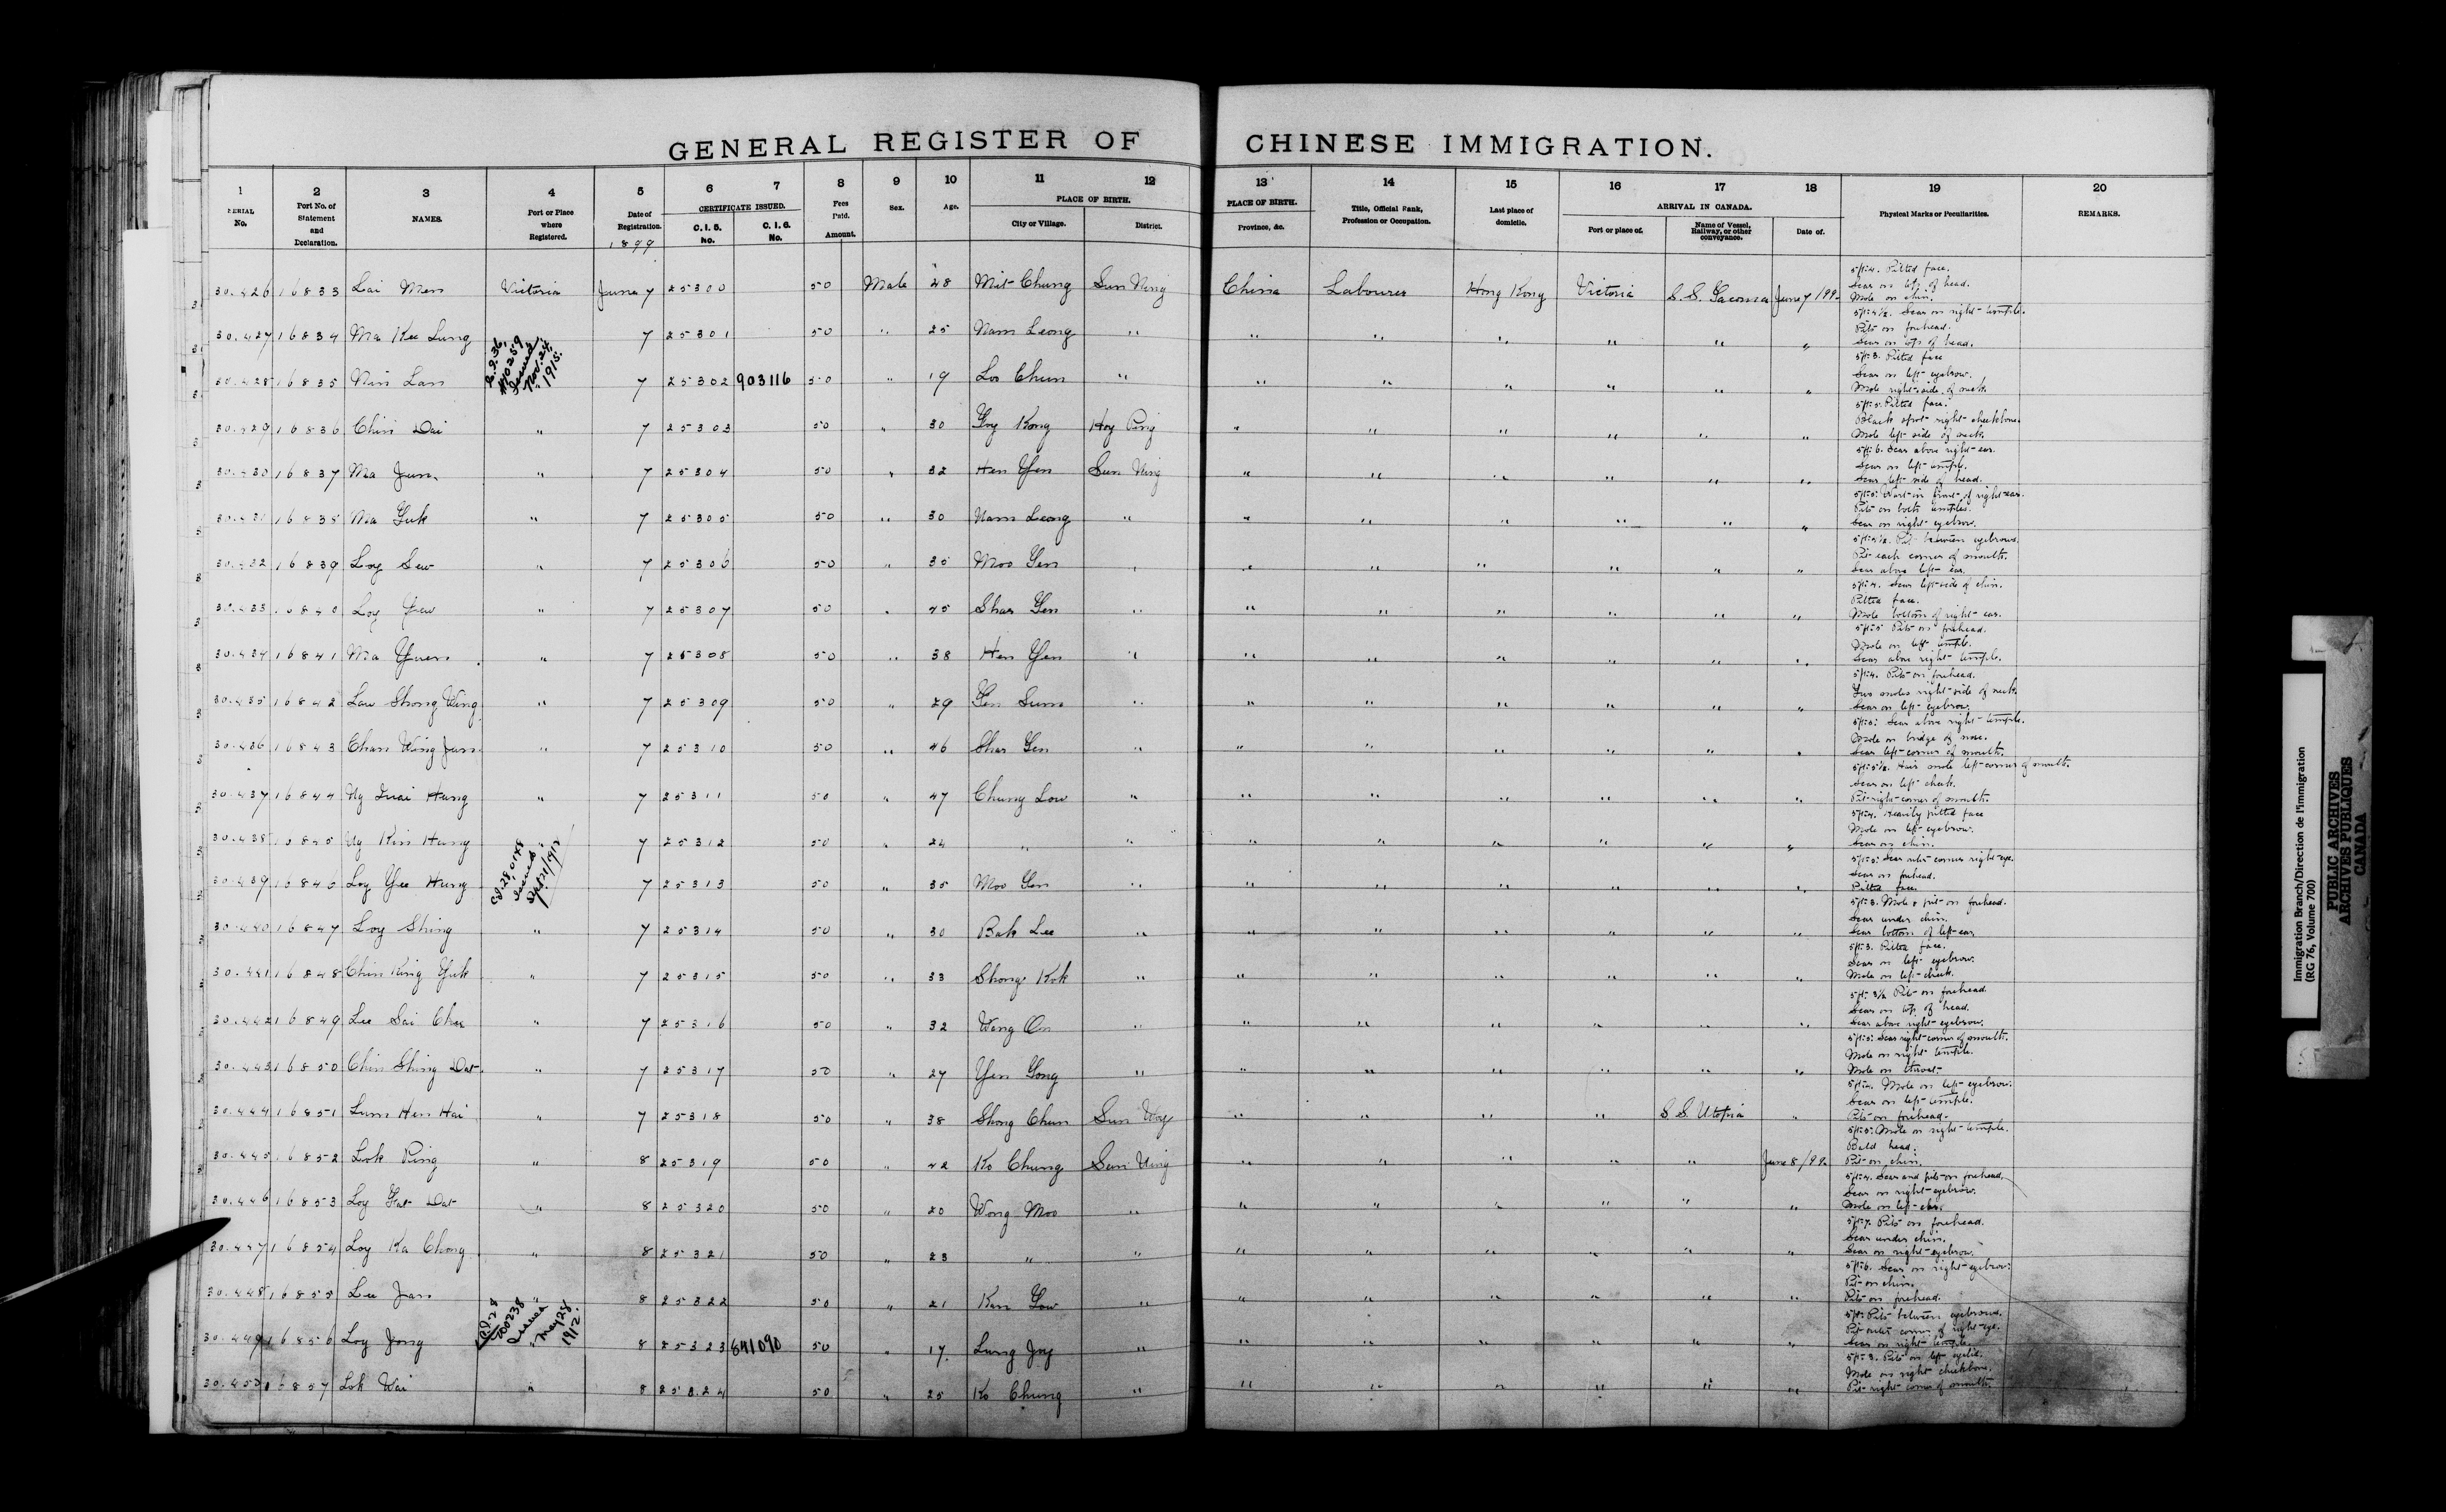 GENERAL REGISTER OF CHINESE IMMIGRATION.
1 2 3 4 5 6 7 8 9 10 11 12 13 14 15 16 17 18 19 20
SERIAL No. Port No. of Statement and Declaration. NAMES. Port or Place where Registered. Date of Registration. CERTIFICATE ISSUED. C. I. 5. No. C. I. 6. No. Fees Paid. Amount. Sex. Age. PLACE OF BIRTH. City or Village. District. PLACE OF BIRTH. Province, &c. Title, Official Rank, Profession or Occupation. Last place of domicile. ARRIVAL IN CANADA. Port or place of. Name of Vessel, Railway, or other conveyance. Date of. Physical Marks or Peculiarities. REMARKS.
1899
30.426 16833 Lai Men Victoria June 7 25300 50 Male 28 Mit Chung Sun Ning China Labourer Hong Kong Victoria S.S. Tacoma June 7/99 5ft 4. Pitted face. Scar on top of head. Mole on chin.
30.427 16834 Ma Kee Lung 7 25301 50 " 25 Nam Leong " " " " " " " 5ft 4½. Scar on right temple. Pits on forehead. Scar on top of head.
C.I.36, No259 Issued Nov. 24, 1915.
30.428 16835 Nin Lan 7 25302 903116 50 " 19 Loo Chun " " " " " " " 5ft 3. Pitted face Scar on left eyebrow. Mole right side of neck.
30.429 16836 Chin Dai " 7 25303 50 " 30 Goy Kong Hoy Ping " " " " " " 5ft 5. Pitted face. Black spot right cheekbone. Mole left side of neck.
30.430 16837 Ma Jun " 7 25304 50 " 32 Hen Yen Sun Ning " " " " " " 5ft 6. Scar above right ear. Scar on left temple. Scar left side of head.
30.431 16838 Ma Guk " 7 25305 50 " 30 Nam Leong " " " " " " " 5ft 5. Wart in front of right ear. Pits on both temples. Scar on right eyebrow.
30.432 16839 Loy Sew " 7 25306 50 " 35 Moo Gen " " " " " " " Pit between eyebrows. Pit each corner of mouth. Scar above left ear.
30.433 16840 Loy Yew " 7 25307 50 " 45 Shar Gen " " " " " " " 5ft 4. Scar left side of chin. Pitted face. Mole bottom of right ear.
30.434 16841 Ma Yuen " 7 25308 50 " 38 Hen Yen " " " " " " " 5ft 5 Pits on forehead. Mole on left temple. Scar above right temple.
30.435 16842 Law Shong Wing " 7 25309 50 " 29 Gen Sum " " " " " " " 5ft 4. Pits on forehead. Two moles right side of neck. Scar on left eyebrow.
30.436 16843 Chan Wing Jun " 7 25310 50 " 46 Shar Gen " " " " " " " 5ft 5. Scar above right temple. Mole on bridge of nose. Scar left corner of mouth.
30.437 16844 Ng Quai Hung " 7 25311 50 " 47 Chung Low " " " " " " " 5ft 5½. Hair mole left corner of mouth. Scar on left cheek. Pit right corner of mouth.
30.438 16845 Ng Kin Hung 7 25312 50 " 24 " " " " " " " " 5ft 4. Heavily pitted face Mole on left eyebrow. Scar on chin.
30.439 16846 Loy Yee Hung 7 25313 50 " 35 Moo Gen " " " " " " " 5ft 5. Scar outer corner right eye. Scar on forehead. Pitted face.
30.440 16847 Loy Shing " 7 25314 50 " 30 Bak Lee " " " " " " " 5ft 3. Mole & pit on forehead. Scar under chin. Scar bottom of left ear.
30.441 16848 Chin King Yuk " 7 25315 50 " 33 Shong Kok " " " " " " " 5ft 3. Pitted face. Scar on left eyebrow. Mole on left cheek.
30.442 16849 Lee Sai Chee " 7 25316 50 " 32 Wing On " " " " " " " 5ft 3½ Pits on forehead. Scar on top of head. Scar above right eyebrow.
30.443 16850 Chin Shing Dat " 7 25317 50 " 27 Yen Gong " " " " " " " 5ft 5. Scar right corner of mouth. Mole on right temple. Mole on throat.
30.444 16851 Lum Hen Hai " 7 25318 50 " 38 Shong Chun Sun Woy " " " " S.S. Utopia " Mole on left eyebrow. Scar on left temple. Pits on forehead.
30.445 16852 Lok Ping " 8 25319 50 " 42 Ko Chung Sun Ning " " " " " June 8/99 5ft 5. Mole on right temple. Bald head. Pit on chin.
30.446 16853 Loy Fat Dat " 8 25320 50 " 20 Wong Moo " " " " " " " 5ft 4. Scar and pits on forehead. Scar on right eyebrow. Mole on left ear.
30.447 16854 Loy Ka Chong " 8 25321 50 " 23 " " " " " " " " 5ft 7. Pits on forehead. Scar under chin. Scar on right eyebrow.
30.448 16855 Lee Jan " 8 25322 50 " 21 Kan Gow " " " " " " " 5ft 6. Scar on right eyebrow. Pit on chin. Pits on forehead.
C.I.28 No0238 Issued May 28 1912.
30.449 16856 Loy Jong " 8 25323 841090 50 " 17 Lung Joy " " " " " " " Pits between eyebrows. Pit outer corner of right eye. Scar on right temple.
30.450 16857 Lok Wai " 8 25324 50 " 25 Ko Chung " " " " " " " 5ft 3. Pits on left eyelid. Mole on right cheekbone. Pit right corner of mouth.
Immigration Branch/Direction de l'immigration
(RG 76, Volume 700)
PUBLIC ARCHIVES
ARCHIVES PUBLIQUES
CANADA